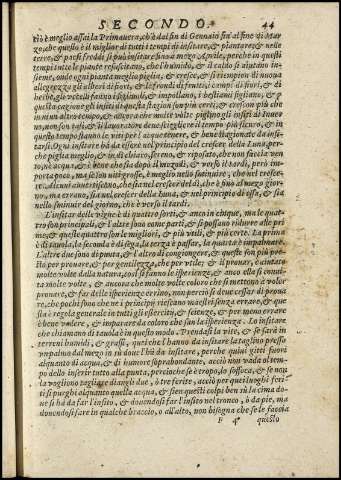 SECONDO. 44
ciò è meglio assai la Primauera, ch'è dal fin di Gennaio fin al fine di Mar
zo, che questo è il miglior di tutti i tempi di insitare, & piantare & nelle
terre, & paesi freddi si può insitare fino a mezo Aprile, perche in questi
tempi tutte le piante resuscitano, che l'humido, & il caldo si aiutano in-
sieme, onde ogni pianta meglio piglia, & cresce, & si riempien di nuoua
allegrezza gli alberi di fiori, & le frondi di frutti, i campi di fiori, & di
herbe, gli vccelli fanno i figliuoli, & impollano, i bestiami figliano, & p
questa cagione gli insiti di questa stagion son più certi, & crescon più che
in un altro tempo, & ancora che molte volte piglino gli insiti di Inuer
no, non son tali, & il lauoratore deue sceglier il tempo più sicuro, & in
questo tempo stando le viti per l'acqua tenere, & ben stagionate da insi-
tarsi. Ogni insitare hà da esser nel principio del crescer della Luna, per-
che piglia meglio, & in dì chiaro, sereno, & riposato, che non faccia ven
to, nè acqua, & è bene che sia dopò il mezodì, & verso il tardi, però im-
porta poco, ma se son uiti grosse, è meglio nello sminuire, che nel cresce-
re. alcuni auuertiscono, che sia nel crescer del dì, che è fino al mezo gior-
no, ma erano, sia nel crescer della luna, & nel principio di essa, & sia
nello sminuir del giorno, che è verso il tardi.
L'insitar delle vigne è di quattro sorti, & anco in cinque, ma le quat
tro son principali, & l'altre sono come parti, & si possono ridurre alle pri
me, & queste sono le migliori, & più vtili, & più certe. La prima
è di tauola, la seconda è di sega, la terza è passar, la quarta è impalmare.
L'altre due sono di punta, & l'altro di congiongere, & queste son più pre-
sto per prouare, & per gentilezza, che per vtile: & il prouar, è aiutato
molte volte dalla natura, così si fanno le isperienze, & anco ella si conui-
ta molte volte, & ancora che molte volte coloro che si mettono à voler
prouare, & far delle isperienze errino, non perciò si deue cessar di proua
re, che pochi sono che ne i principij riescano maestri senza errare, & que
sta è regola generale in tutti gli essercitij, & scienze, & per meno errare
è bene vedere, & imparare da coloro che san la isperienza. Lo insitare
che chiamano di tauola è in questo modo. Prendasi la vite, & se sarà in
terreni humidi, & grassi, qui che l'hanno da insitare la taglino presso
vn palmo dal mezo in sù doue l'hà da insitare, perche quiui gitti fuori
alquanto di acqua, & di humore soprabondante, acciò non vada al tem-
po dello inserir tutto alla punta, perche se è troppo, lo soffoca, & se non
la vogliono tagliare dianli due, ò tre ferite, acciò per quei luoghi feri-
ti si purghi alquanto quella acqua, & sien questi colpi ben sù la cima do-
ue si hà da far l'insito, & douendosi far lo insito nel tronco, ò da pie, ma
douendosi fare in qualche braccio, ò all'alto, non bisogna che se le faccia
F 4 questo